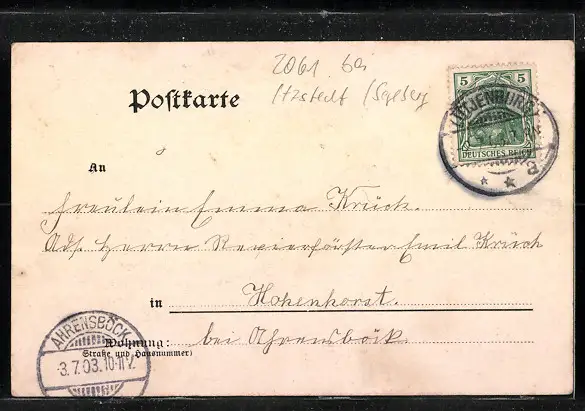 2061 bei
Itzstedt / Segeberg
Postkarte
5 5
LÜTJENBURG
DEUTSCHES REICH
* * a
An
Fräulein Emma Krück.
Adr. Herrn Revierförster Emil Krück
in Hohenhorst.
AHRENSBÖCK
3.7.03.10-11V.
Wohnung: bei Ahrensböck
(Straße und Hausnummer)